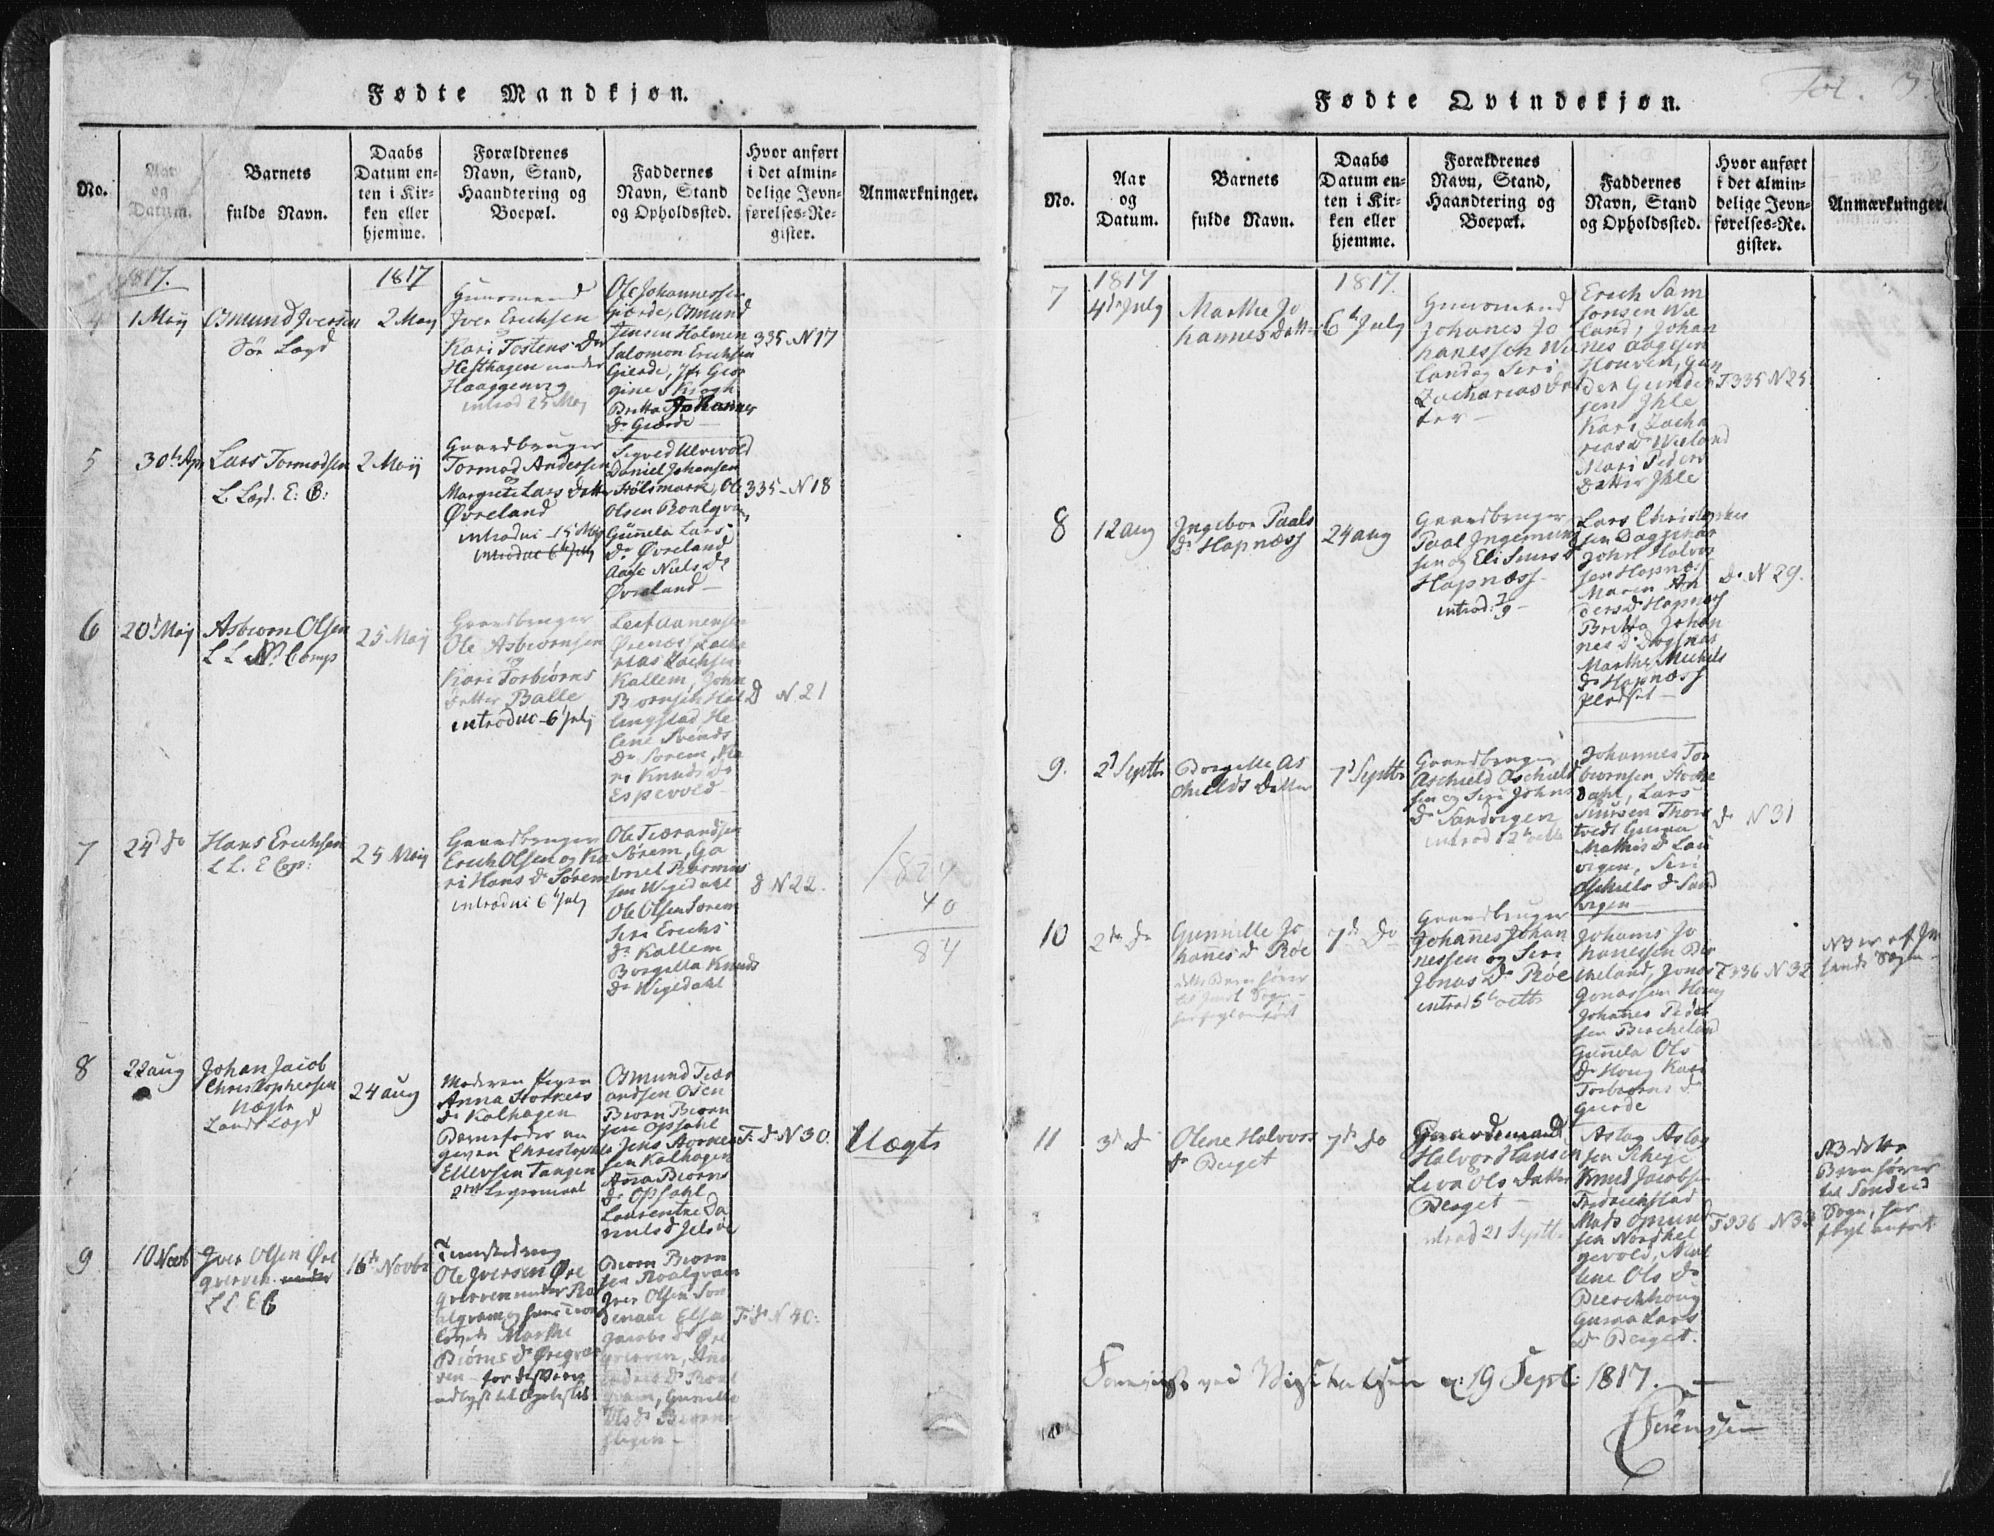 Fødte Mandkjøn.
No.
Aar
og
Datum.
Barnets
fulde Navn.
Daabs
Datum en-
ten i Kir-
ken eller
hjemme.
Forældrenes
Navn, Stand,
Haandtering og
Boepæl.
Faddernes
Navn, Stand
og Opholdssted.
Hvor anført
i det almin-
delige Jevn-
førelses-Re-
gister.
Anmærkninger.
1817.
1817
4
1 Maij
Osmund Iversen
Sør Lægd
2 May
Huusmand
Iver Erichsen
og
Kari Tostens Dr
Hesthagen under
Haaggenvig
introd 25 Maj
Ole Johannessen
Giærde, Osmund
Jensen Holmen
Salomon Erichsen
Gierde, Jfr Geor
gine S Krogh
Britta Johannes
Dr Gierde
335. N 17
5
30t Apr
Lars Tormodsen
L. Lægd. E: C:
2 Maij
Gaardbruger
Tormod Andersen
og
Margrete Lars Datter
Øvreland
introdui 15 Maj
Sigved Ulvevold
Daniel Johansen
Hølsmark, Ole
Olsen Roalqvam,
Gunnela Lars
Dr Øvreland
Aase Niels Dr
Øvreland
335 - N 18
6
20t Maj
Asbiørn Olsen
L L N. Comp
25 Maij
Gaardbruger
Ole Asbiørnsen
og
Kari Torbiørns
Datter Balle
introduc 6 July
Kallem, John
Biørnsen Hal
lingstad He
lene Svends
Dr Sørem, Ka
ri Knuds Dr
Espevold
D N 21
7
24d Do
Hans Erichsen
L L. E Cop:
25 Maij
Gaardbruger
Erich Olsen og Ka
ri Hans Dr Sørem
introdui 6 July
Ole Tiærandsen
Sørem, Ga
briel Rasmus
sen Wigedahl
Ole Olsen Sørem
Siri Erichs
Dr Kallem
Borgilla Knuds
Dr Wigedahl
D N 22.
1824
40
84
8
22 aug
Johan Jacob
Christophersen
Uægte
Landt Lægd
24 aug
Moderen Pigen
Anna Storkers
Dr Kalhagen
Barnefader an
given Christopher
Ellevsen Tangen
2det Leiermaal
Osmund Tiær
andsen Osen
Biørn Biørn
sen Opsahl
Jens Storker
sen Kalhagen
Anna Biørns
Dr Opsahl
Laurentze Da
niels D Jelsøe
F: d: N 30.
Uægte
9
10 Novb
Iver Olsen Øre
qverven
L L E C
16t Novbr
Ole Iversen Øre
qverven under Ro
alqvam og hans Trol
Marthe
Biørns Dr Øreqver
ven
Biørn Biørn
sen Roalqvam
Iver Olsen Søn
denaae Elsa
Jacobs D Øre
qverven, Ana
Dr Roal
qvam, Gunilla
Ols Dr
F: d N 40:
Fødte Qvindekjøn.
Fol.
No.
Aar
og
Datum.
Barnets
fulde Navn.
Daabs
Datum en-
ten i Kir-
ken eller
hjemme.
Forældrenes
Navn, Stand,
Haandtering og
Boepæl.
Faddernes
Navn, Stand
og Opholdssted.
Hvor anført
i det almin-
delige Jevn-
førelses-Re-
gister.
Anmærkninger.
1817
1817.
7
4de July
Marthe Jo
hannes Datter
6t July
Huusmand
Johanes Jo
hanessen We
land og Siri
Zacharias Dat
ter
Erich Sam
sonsen We
land, Johan
nes Aagesen
Houven, Gun
der Gunder
sen Ihle
Kari Zacha
riasd Weeland
Mari Peders
Datter Ihle
F 335 N 25
8
12 aug
Ingebor Paals
Dr Hapnæss
24 aug
Gaardbruger
Paal Ingemund
sen og Eli Siurs D
Hapnæss
introd: 7/9
Lars Christopher
sen Dagsnæs
John Halvor
sen Hapnæss
Maren An
dersd Hapnæss
Britta Johan
nes D Dagsnæs
Marthe Michels
Dr Hapnæss
Pladset
D. N 29.
9.
2d Septbr
Borgille As
chields Datter
7d Septbr
Gaardbruger
Aschield Aschield
sen og Siri Johns
Dr Sandvigen
introd 12t octb
Johannes Tor
biørnsen Stocke
dahl, Lars
Siursen Thors
tvedt Guroa
Mathis D Lau
vigen, Siri
Aschields D Sand
vigen
D N 31
10
2de D
Gunnille Jo
hannes D Røe
dette Barn hører
til Jandt Sogn
7de Do
Gaardbruger
Johannes Johan
nessen og Siri
Jonas Dr Røe
introd 5t octb
Johanes Jo
hanessen Bir
cheland, Jonas
Jonassen Houg
Johanes Peder
sen Bircheland
Gunnela Ols
Dr Houg Kari
Torbiørns D
Gierde
F 336 N 32
11
3d D
Olene Halvors
Dr Berget
7de Do
Gaardemand
Halvor Hansen
Liva Ols Datter
Berget
introd 21 Septb.
Aslag Aslag
sen Scheje
Knud Jacobsen
Fredrichstad
Mads Osmund
sen Nordhel
gevold,
lene Ols Dr
Birchehoug
Guroa Lars
Dr Berget.
F 336 N 33
NB dette
Barn hører
til Sondeid
Sogn, her
feigl anført
Foreviist ved Visitatsen d: 19 Sept: 1817.
Sørenssen